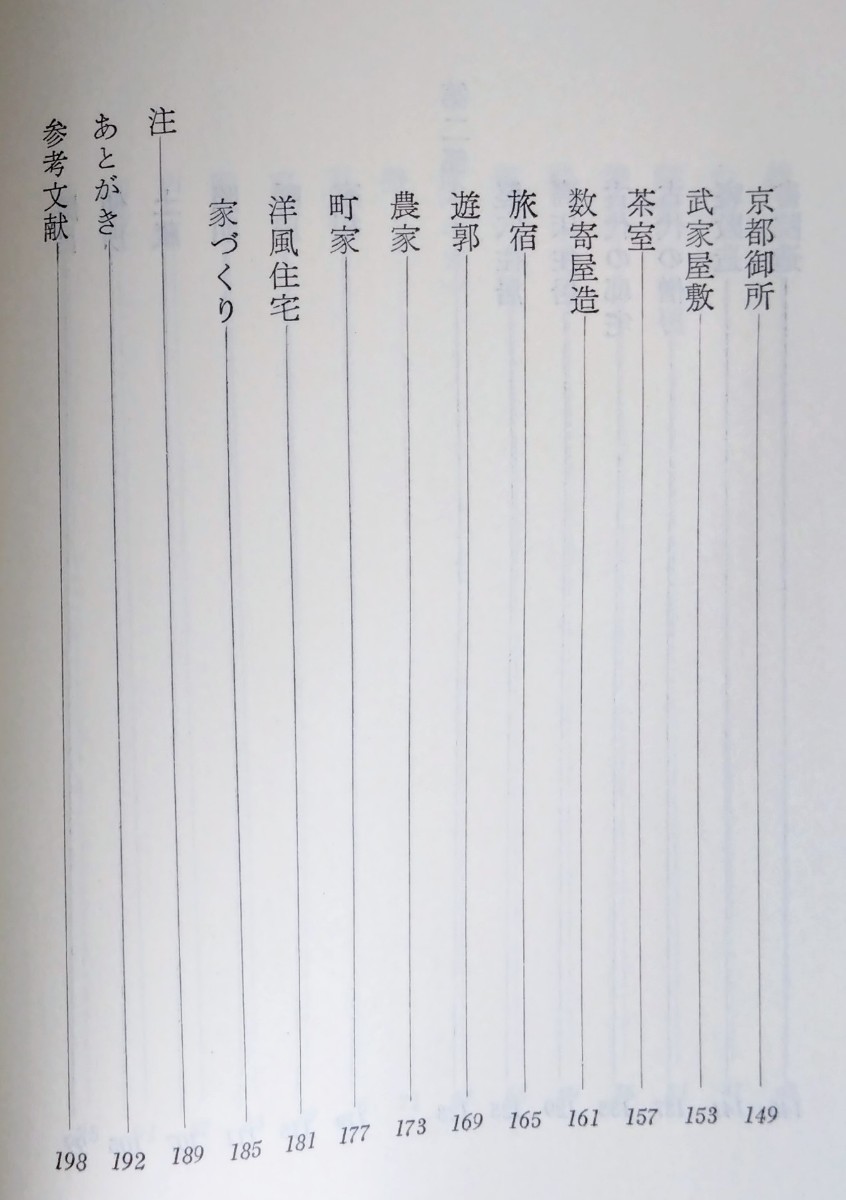 京都御所 149
武家屋敷 153
茶室 157
数寄屋造 161
旅宿 165
遊郭 169
農家 173
町家 177
洋風住宅 181
家づくり 185
注 189
あとがき 192
参考文献 198